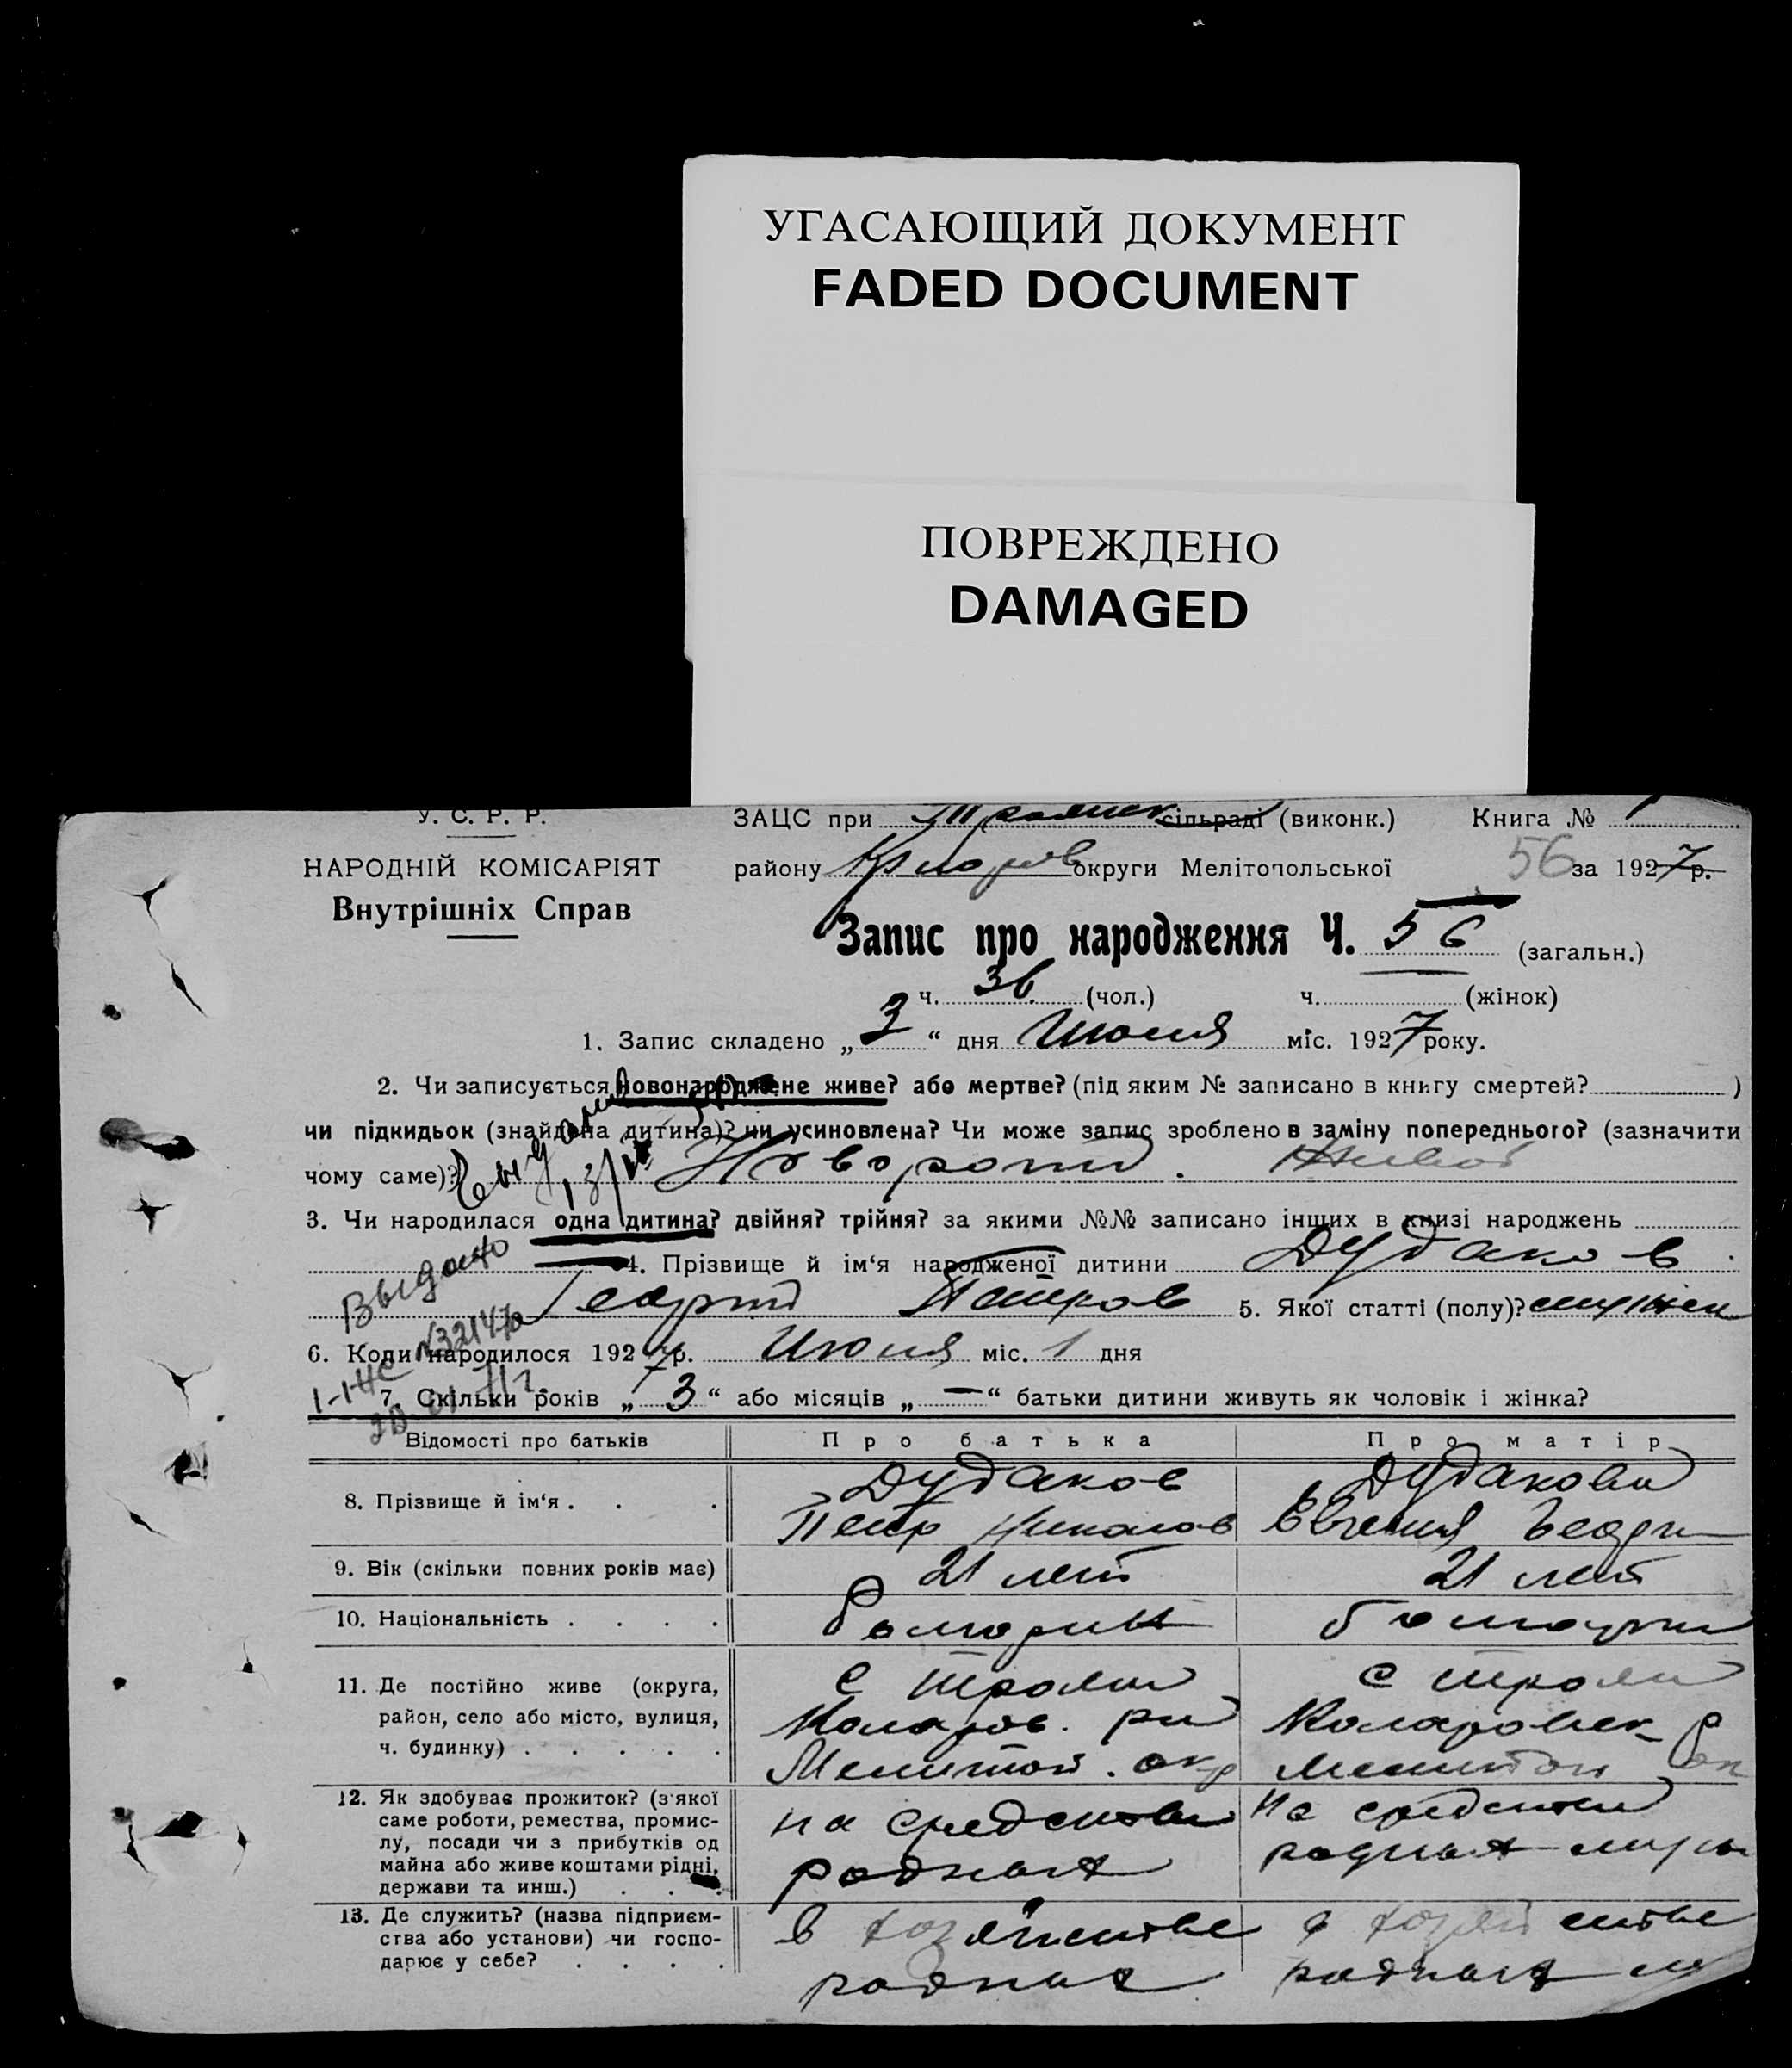 УГАСАЮЩИЙ ДОКУМЕНТ
FADED DOCUMENT
ПОВРЕЖДЕНО
DAMAGED
У. С. Р. Р.
ЗАЦС при Троянск сільраді (виконк.) Книга № 1
НАРОДНІЙ КОМІСАРІЯТ
району округи Мелітопольської 56 за 1927 р.
Внутрішніх Справ
Запис про народження Ч. 56 (загальн.)
ч. 36 (чол.) ч. (жінок)
1. Запис складено „ 3 “ дня Июля міс. 1927 року.
2. Чи записується новонароджене живе? або мертве? (під яким № записано в книгу смертей? )
чи підкидьок (знайдена дитина)? чи усиновлена? Чи може запис зроблено в заміну попереднього? (зазначити
чому саме)? Новорожд. Живой
3. Чи народилася одна дитина? двійня? трійня? за якими №№ записано інших в книзі народжень
Выдано
4. Прізвище й ім‘я народженої дитини Дудаков
Георгий Петров 5. Якої статті (полу)? мужск
6. Коли народилося 1927 р. Июля міс. 1 дня
7. Скільки років „ 3 “ або місяців „ — “ батьки дитини живуть як чоловік і жінка?
Відомості про батьків Про батька Про матір
8. Прізвище й ім‘я . . . Дудаков Дудакова
Петр Николов Евгения Георги
9. Вік (скільки повних років має) 21 лет 21 лет
10. Національність . . . . болгарин болгарки
11. Де постійно живе (округа, с Трояни с Трояни
район, село або місто, вулиця, Коларов. рн Коларовск р
ч. будинку) . . . . . Мелитоп. окр Мелитоп ок
12. Як здобуває прожиток? (з якої
саме роботи, ремества, промис- на средства на средства
лу, посади чи з прибутків од
майна або живе коштами рідні, родных родных мужа
держави та инш.) . . .
13. Де служить? (назва підприєм- в хозяйстве в хозяйстве
ства або установи) чи госпо-
дарює у себе? . . . . родных родных м